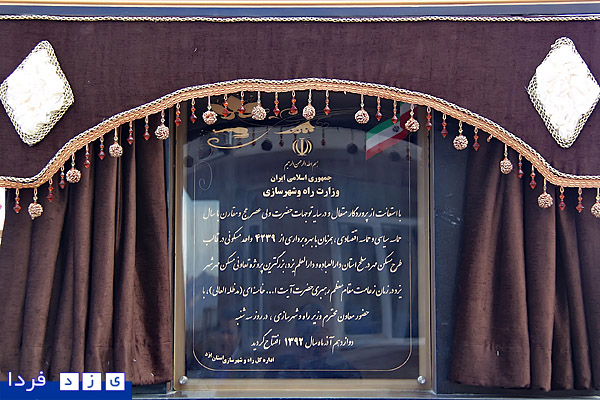 بسم الله الرحمن الرحیم
جمهوری اسلامی ایران
وزارت راه و شهرسازی
با استعانت از پروردگار متعال و در سایه توجهات حضرت ولی عصر عج و مقارن با سال
حماسه سیاسی و حماسه اقتصادی ، همزمان با بهره برداری از ۴۲۳۹ واحد مسکونی در قالب
طرح مسکن مهر در سطح استان دارالعباده و دارالعلم یزد، بزرگترین پروژه تعاونی مسکن مهر شهر
یزد در زمان زعامت مقام معظم رهبری حضرت آیت ا... خامنه ای (مدظله العالی) ، با
حضور معاون محترم وزیر راه و شهرسازی ، در روز سه شنبه
دوازدهم آذرماه سال ۱۳۹۲ افتتاح گردید
اداره کل راه و شهرسازی استان یزد
یزد فردا